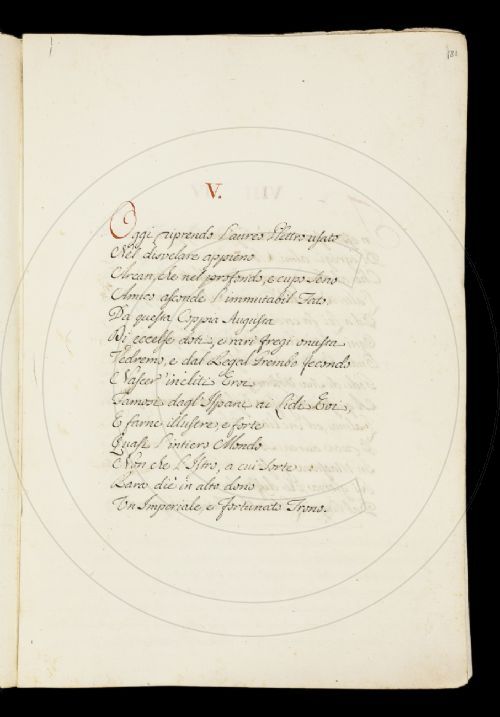 181
V.
Oggi riprendo l'aureo Plettro usato
Nel disvelare appieno
Arcan, che nel profondo, e cupo Seno
Amico asconde l'immutabil Fato.
Da questa Coppia Augusta
Di eccelse doti, e rari fregi onusta
Vedremo, e dal Regal Grembo fecondo
Nascer incliti Eroi
Famosi dagl'Ispani ai Lidi Eoi
E farne illustre, e forte
Quasi l'intiero Mondo
Non che l'Istro, a cui Sorte
Rara diè in alto dono
Un Imperiale, e fortunato Trono.